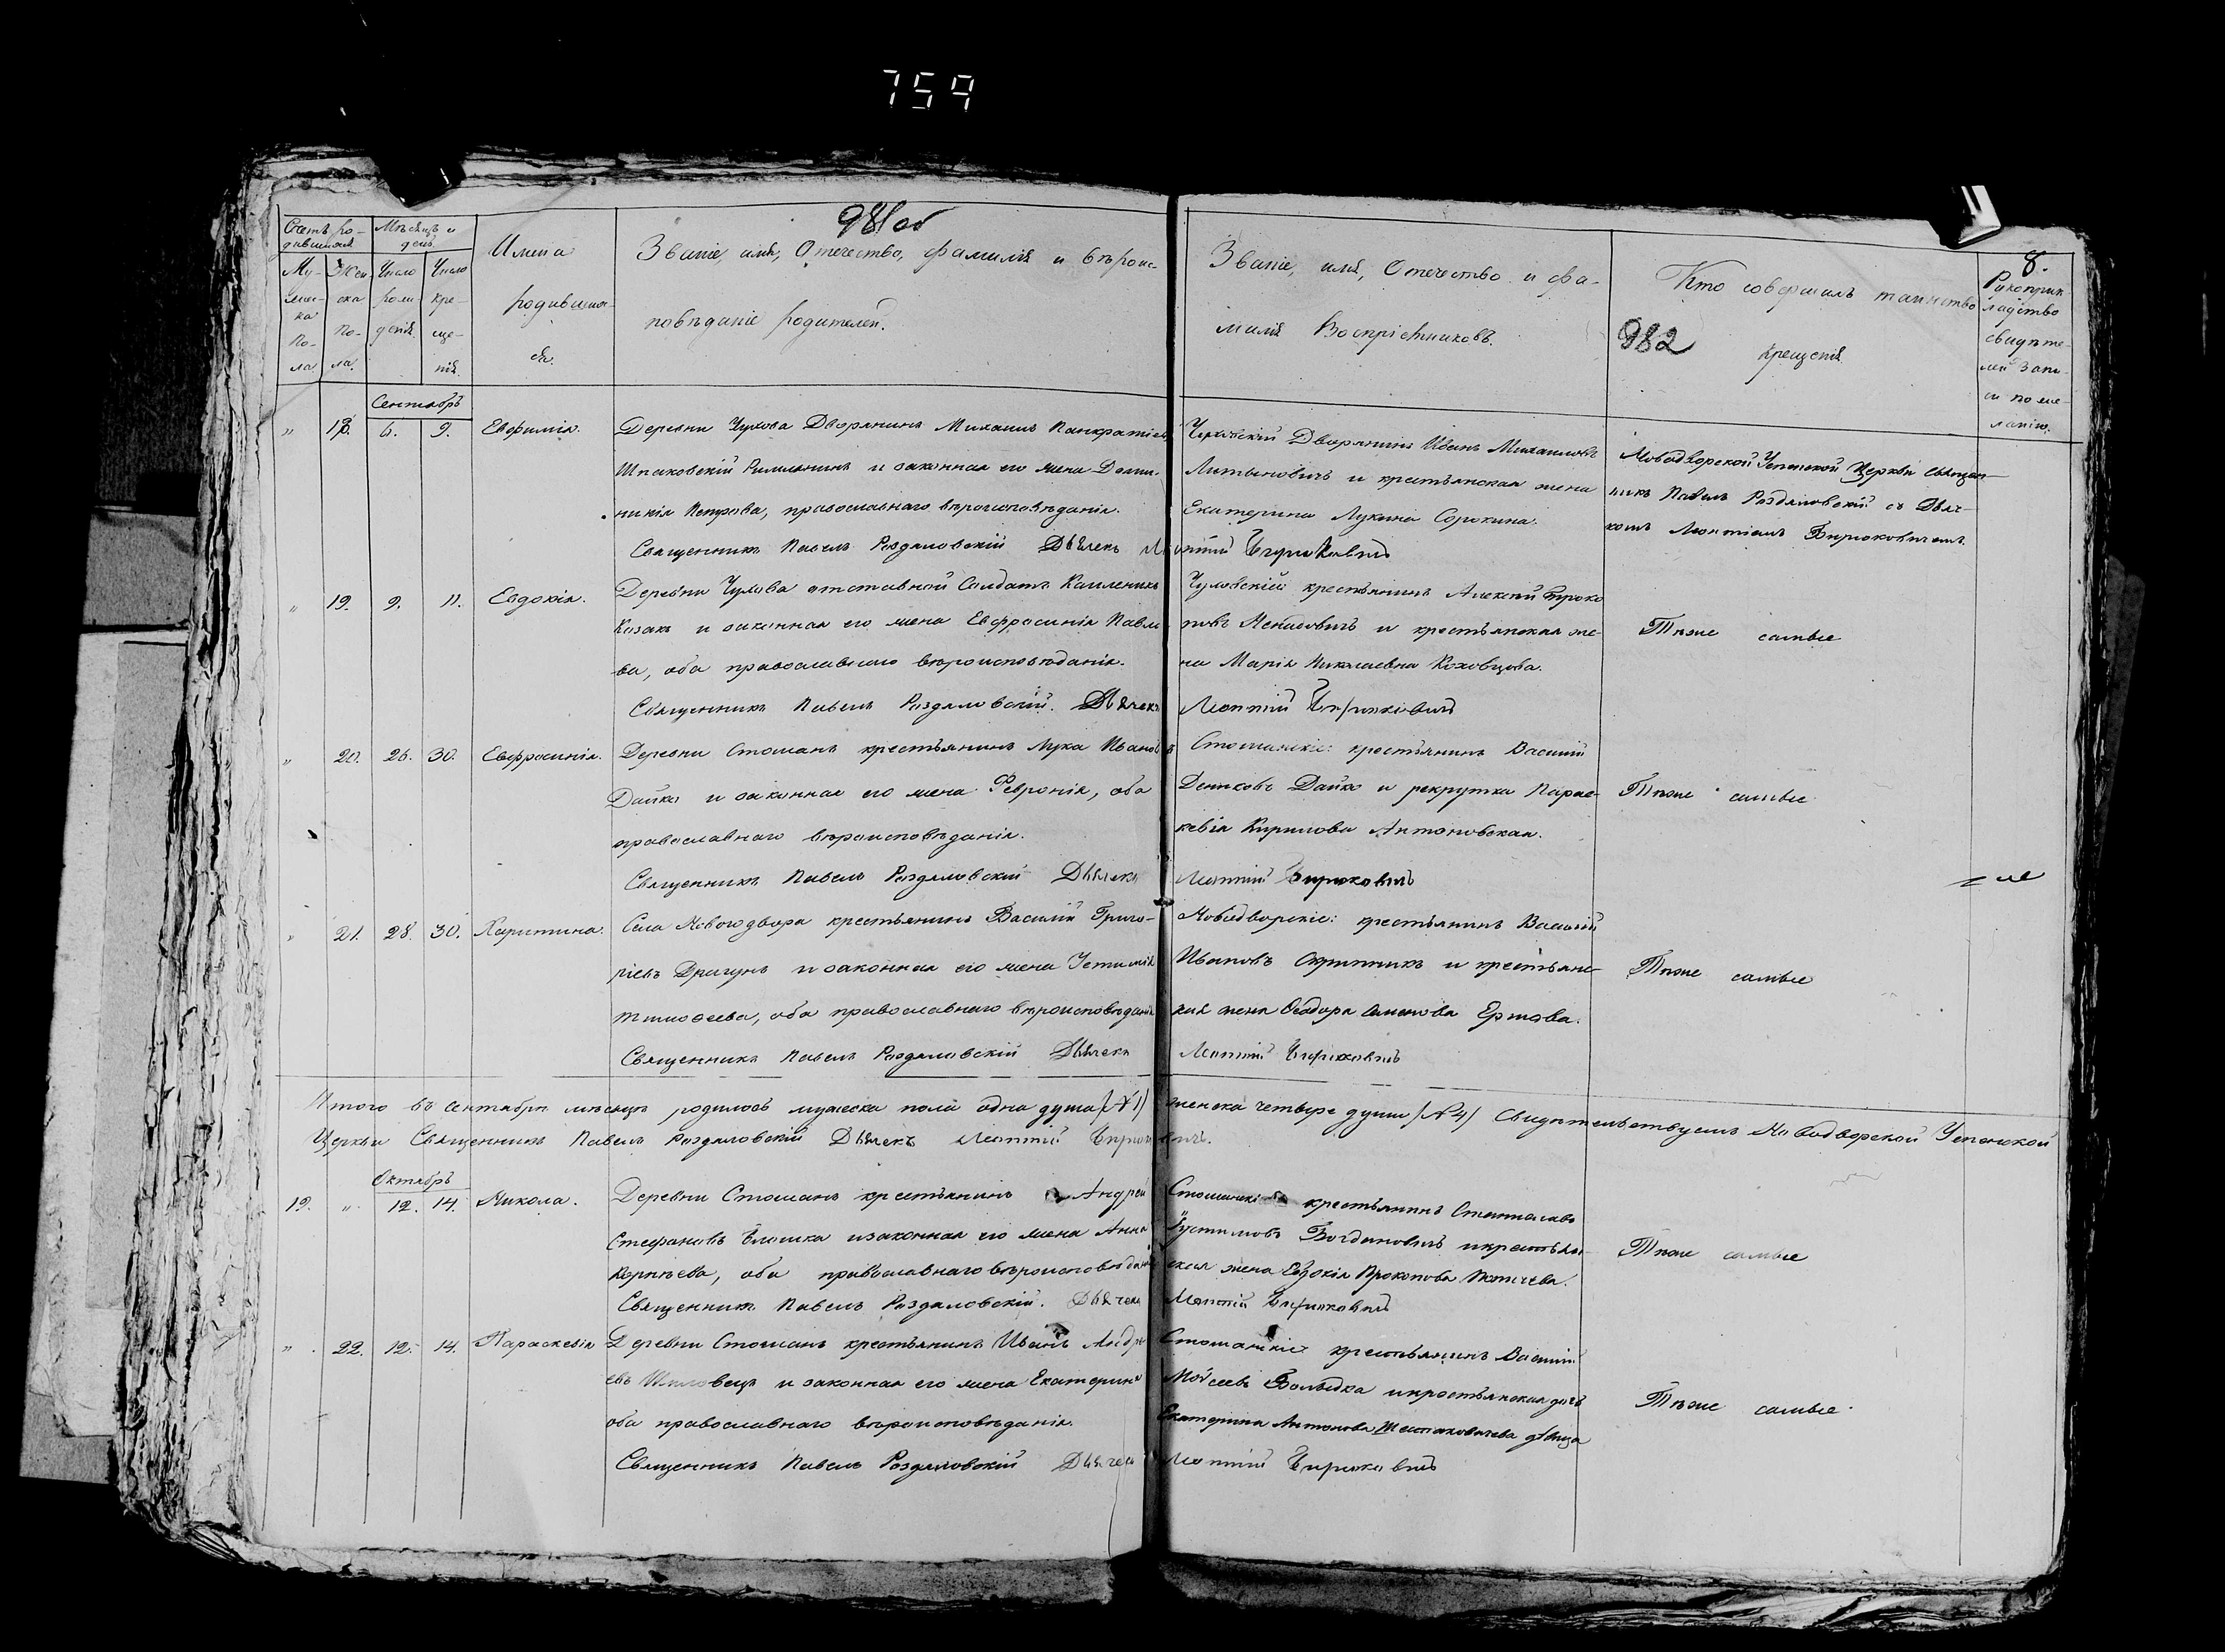 759
981об
8.
982
Счетъ ро-
дившихся
Мѣсяцъ и
день
Му-
жес-
ка
по-
ла.
Жен
ска
по-
ла.
Число
рож-
денія.
Число
кре-
ще-
нія.
Имена
родивших-
ся.
Званіе, имя, Отечество, фамилія и вѣроис-
повѣданіе родителей.
Званіе, имя, Отечество и фа-
милія Воспріемниковъ.
Кто совершалъ таинство
крещенія
Рукоприк-
ладство
свидѣте-
лей запи-
си по же-
ланію.
Сентябрь
" 18. 6. 9. Евфимія.
Деревни Чухова Дворянинъ Михаилъ Панкратіев
Шпаковскій Римлянинъ и законная его жена Доми-
никія Петрова, православнаго вѣроисповѣданія.
Священникъ Павелъ Роздяловскій Дьячекъ
Дворянинъ Иванъ Михаиловъ
Литвиновичъ и крестьянская жена
Екатерина Лукина Сорокина.
Леонтій Бирюковичъ
Новодворской Успенской Церкви Священ-
никъ Павелъ Роздяловскій съ Дьяч-
комъ Леонтіемъ Бирюковичемъ.
" 19. 9. 11. Евдокія.
Деревни Чухова отставной Солдатъ Каллиникъ
Козакъ и законная его жена Евфросинія Павло-
ва, оба православнаго вѣроисповѣданія.
Священникъ Павелъ Роздяловскій. Дьячекъ
Чуховскій крестьянинъ Алексій Проко
повъ и крестьянская же-
на Марія Николаевна Коховцова.
Леонтій Бирюковичъ
Тѣже самые
" 20. 26. 30. Евфросинія.
Деревни Стошанъ крестьянинъ Лука Ивановъ
Дайко и законная его жена Февронія, оба
православнаго вѣроисповѣданія.
Священникъ Павелъ Роздяловскій Дьячекъ
Стошанскіе: крестьянинъ Василій
Дайко и рекрутка Парас-
кевія Кирилова Антоновская.
Леонтій Бирюковичъ
Тѣже самые
" 21. 28. 30. Харитина.
Села Новогодвора крестьянинъ Василій Григо-
ріевъ Драгунъ и законная его жена Устинія
Тимоѳеева, оба православнаго вѣроисповѣданія
Священникъ Павелъ Роздяловскій Дьячекъ
Новодворскіе: крестьянинъ Василій
Ивановъ Скрипникъ и крестьянс-
кая жена Ѳеодора Семенова Ершова.
Леонтій Бирюковичъ
Тѣже самые
Итого въ сентябрѣ мѣсяцѣ родилось мужеска пола одна душа /№1/ женска четыре души /№4/ Свидѣтельствуемъ Новодворской Успенской
Церкви Священникъ Павелъ Роздяловскій Дьячекъ Леонтій Бирюковичъ.
Октябрь
19. " 12. 14. Никола.
Деревни Стошанъ крестьянинъ Андрей
Стефановъ и законная его жена Анна
Корнѣева, оба православнаго вѣроисповѣданія
Священникъ Павелъ Роздяловскій. Дьячекъ
крестьянинъ Станиславъ
Юстиновъ Богдановичъ и крестьян-
ская жена Евдокія Прокопова
Леонтій Бирюковичъ
Тѣже самые
" 22. 12. 14. Параскевія
Деревни Стошанъ крестьянинъ Иванъ Андре
евъ Шиловецъ и законная его жена Екатерина
оба православнаго вѣроисповѣданія.
Священникъ Павелъ Роздяловскій Дьячекъ
Стошанскіе крестьянинъ Василій
Мойсеевъ и крестьянская дочь
Екатерина Антонова дѣвица
Леонтій Бирюковичъ
Тѣже самые.